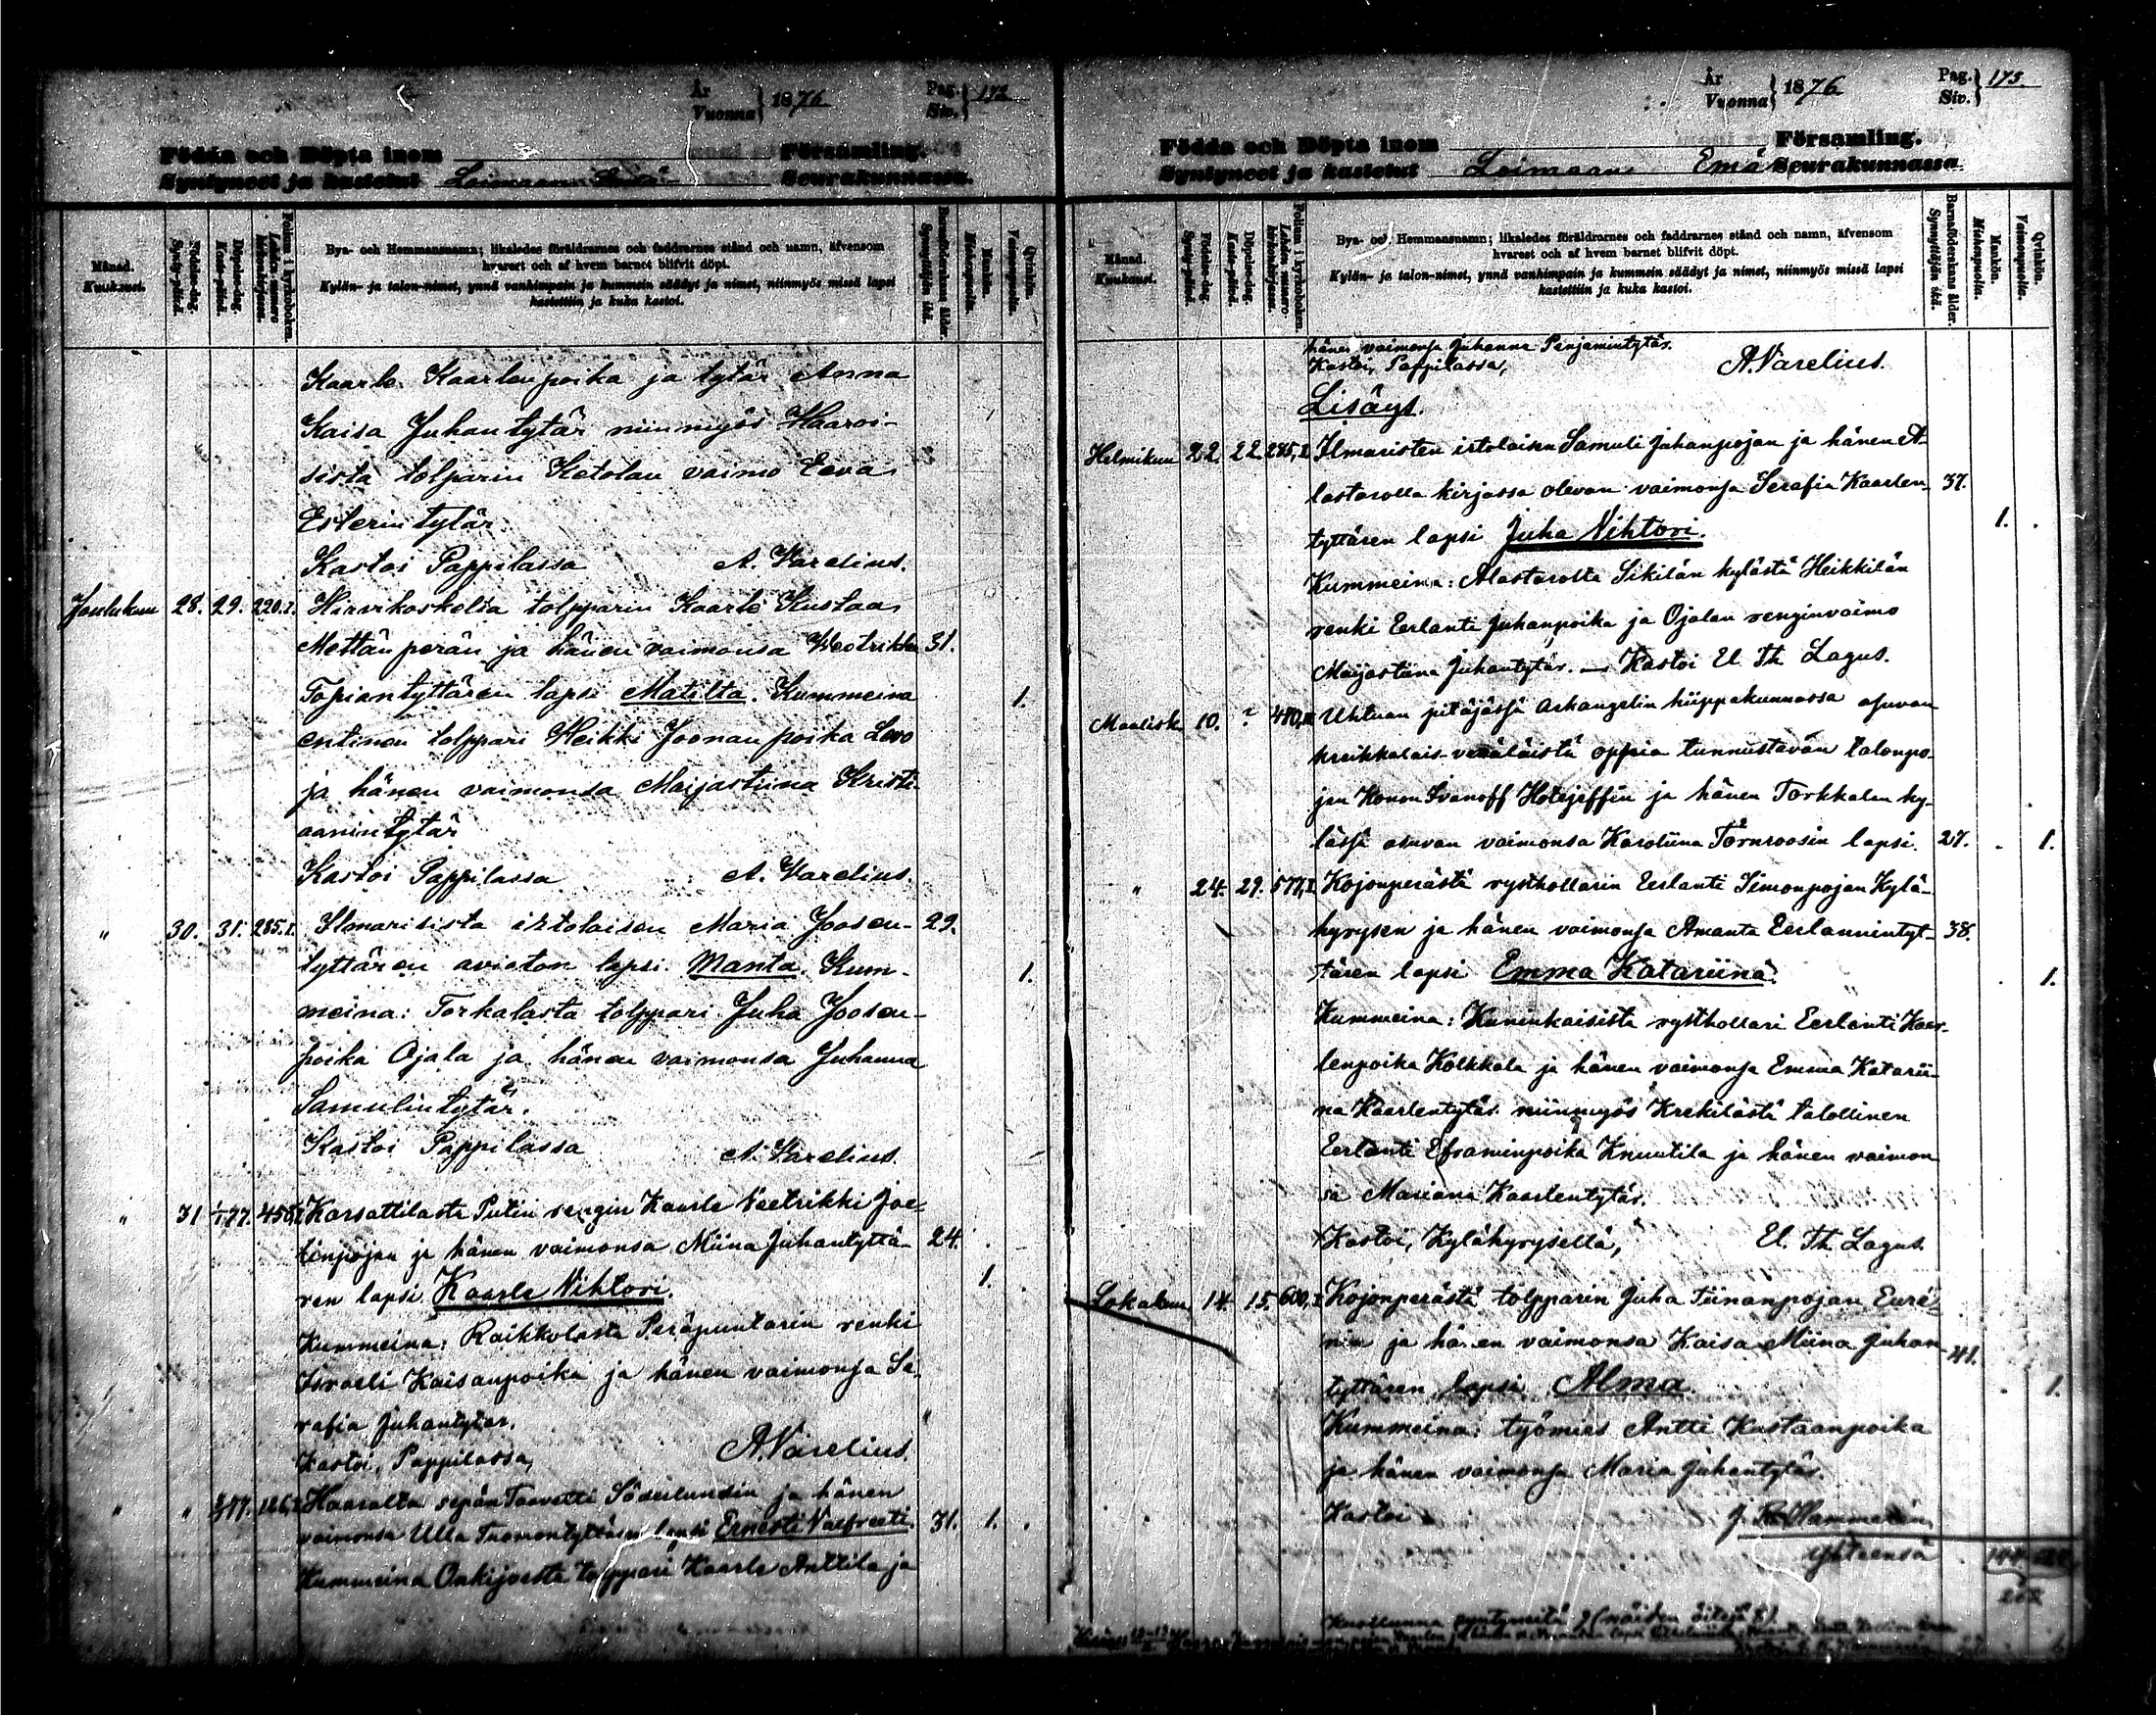 År
Vuonna } 1876
Pag.
Siv. } 172
Födda och Döpta inom Församling.
Syntyneet ja kastetut Loimaan Emä Seurakunnassa.
Månad.
Kuukausi.
Födelse-dag.
Synty-päivä.
Döpelse-dag.
Kaste-päivä.
Folium i kyrkoboken.
Lehden numero kirkonkirjassa.
Bya- och Hemmansnamn; likaledes föräldrarnes och faddrarnes stånd och namn, äfvensom
hvarest och af hvem barnet blifvit döpt.
Kylän- ja talon-nimet, ynnä vanhimpain ja kummein säädyt ja nimet, niinmyös missä lapsi
kastettiin ja kuka kastoi.
Barnaföderskans ålder.
Synnyttäjän ikä.
Mankön.
Miehenpuolia.
Qvinkön.
Vaimonpuolia.
Kaarlo Kaarlenpoika ja tytär Anna
Kaisa Juhantytär niinmyös Haaroi-
sista tolparin Ketolan vaimo Eeva
Esterintytär
Kastoi Pappilassa A. Varelius.
Joulukuu 28. 29. 220.I. Hirvikoskelta tolpparin Kaarlo Kustaa
Mettänperän ja hänen vaimonsa Weotrikka 31.
Topiantyttären lapsi Matilta. Kummeina 1.
entinen tolppari Heikki Joonanpoika Levo
ja hänen vaimonsa Maijastiina Kristi-
aanintytär
Kastoi Pappilassa A. Varelius.
" 30. 31. 285.I. Ilmarisista iztolaisen Maria Joosen- 29.
tyttären avioton lapsi Manta. Kum- 1.
meina: Torkalasta tolppari Juha Joosen-
poika Ojala ja hänen vaimonsa Juhanna
Samulintytär.
Kastoi Pappilassa A. Varelius.
" 31 1/1 77. Karsattilasta Putin rengin Kaarle Veetrikki Joe-
linpojan ja hänen vaimonsa Miina Juhantyttä- 24.
ren lapsi Kaarle Vihtori. 1.
Kummeina: Raikkolasta Peräpuntarin renki
Israeli Kaisanpoika ja hänen vaimonsa Se-
rafia Juhantytär.
Kastoi, Pappilassa, A. Varelius.
" " Haaralta sepän Taavetti Söderlundin ja hänen
vaimonsa Ulla Tuomontyttären lapsi Ernesti Valfreeti. 31. 1.
Kummeina Onkijoesta tolppari Kaarle Anttila ja
År
Vuonna } 1876
Pag.
Siv. } 173.
Födda och Döpta inom Församling.
Syntyneet ja kastetut Loimaan Emä Seurakunnassa.
Månad.
Kuukausi.
Födelse-dag.
Synty-päivä.
Döpelse-dag.
Kaste-päivä.
Folium i kyrkoboken.
Lehden numero kirkonkirjassa.
Bya- och Hemmansnamn; likaledes föräldrarnes och faddrarnes stånd och namn, äfvensom
hvarest och af hvem barnet blifvit döpt.
Kylän- ja talon-nimet, ynnä vanhimpain ja kummein säädyt ja nimet, niinmyös missä lapsi
kastettiin ja kuka kastoi.
Barnaföderskans ålder.
Synnyttäjän ikä.
Mankön.
Miehenpuolia.
Qvinkön.
Vaimonpuolia.
hänen vaimonsa Juhanna Penjamintytär.
Kastoi, Pappilassa, A. Varelius.
Lisäys.
Helmikuu 22. 22. 285,I Ilmaristen istolaisen Samuli Juhanpojan ja hänen A-
lastarolla kirjassa olevan vaimonsa Serafia Kaarlen- 37.
tyttären lapsi Juha Vihtori. 1.
Kummeina: Alastarolta Sikilän kylästä Heikkilän
renki Eerlanti Juhanpoika ja Ojalan renginvaimo
Maijastiina Juhantytär. — Kastoi El. Th. Lagus.
Maalisk. 10. ? Uhtuan pitäjässä Arkangelin hiippakunnassa asuvan
kreikkalais-venäläistä oppia tunnustavan talonpo-
jan Konon Ivanoff Hotejeffin ja hänen Torkkalan ky-
lässä asuvan vaimonsa Karoliina Törnroosin lapsi. 27. 1.
" 24. 29. 577,I Kojonperästä rysthollarin Eerlanti Simonpojan Kylä-
hyrysen ja hänen vaimonsa Amanta Eerlannintyt- 38.
tären lapsi Emma Katariina. 1.
Kummeina: Kuninkaisista rysthollari Eerlanti Kaar-
lenpoika Kolkkala ja hänen vaimonsa Emma Katarii-
na Kaarlentytär niinmyös Krekilästä talollinen
Eerlanti Eframinpoika Knuutila ja hänen vaimon
sa Mariana Kaarlentytär.
Kastoi, Kylähyrysellä, El. Th. Lagus.
Lokakuu 14. 15. 600,I Kojonperästä tolpparin Juha Tiinanpojan Euré-
nin ja hänen vaimonsa Kaisa Miina Juhan- 41.
tyttären lapsi Alma. 1.
Kummeina: työmies Antti Kustaanpoika
ja hänen vaimonsa Maria Juhantytär.
Kastoi J. R. Hammarén
Yhteensä
Kuolleena syntyneitä 9 (näiden äitejä 8).